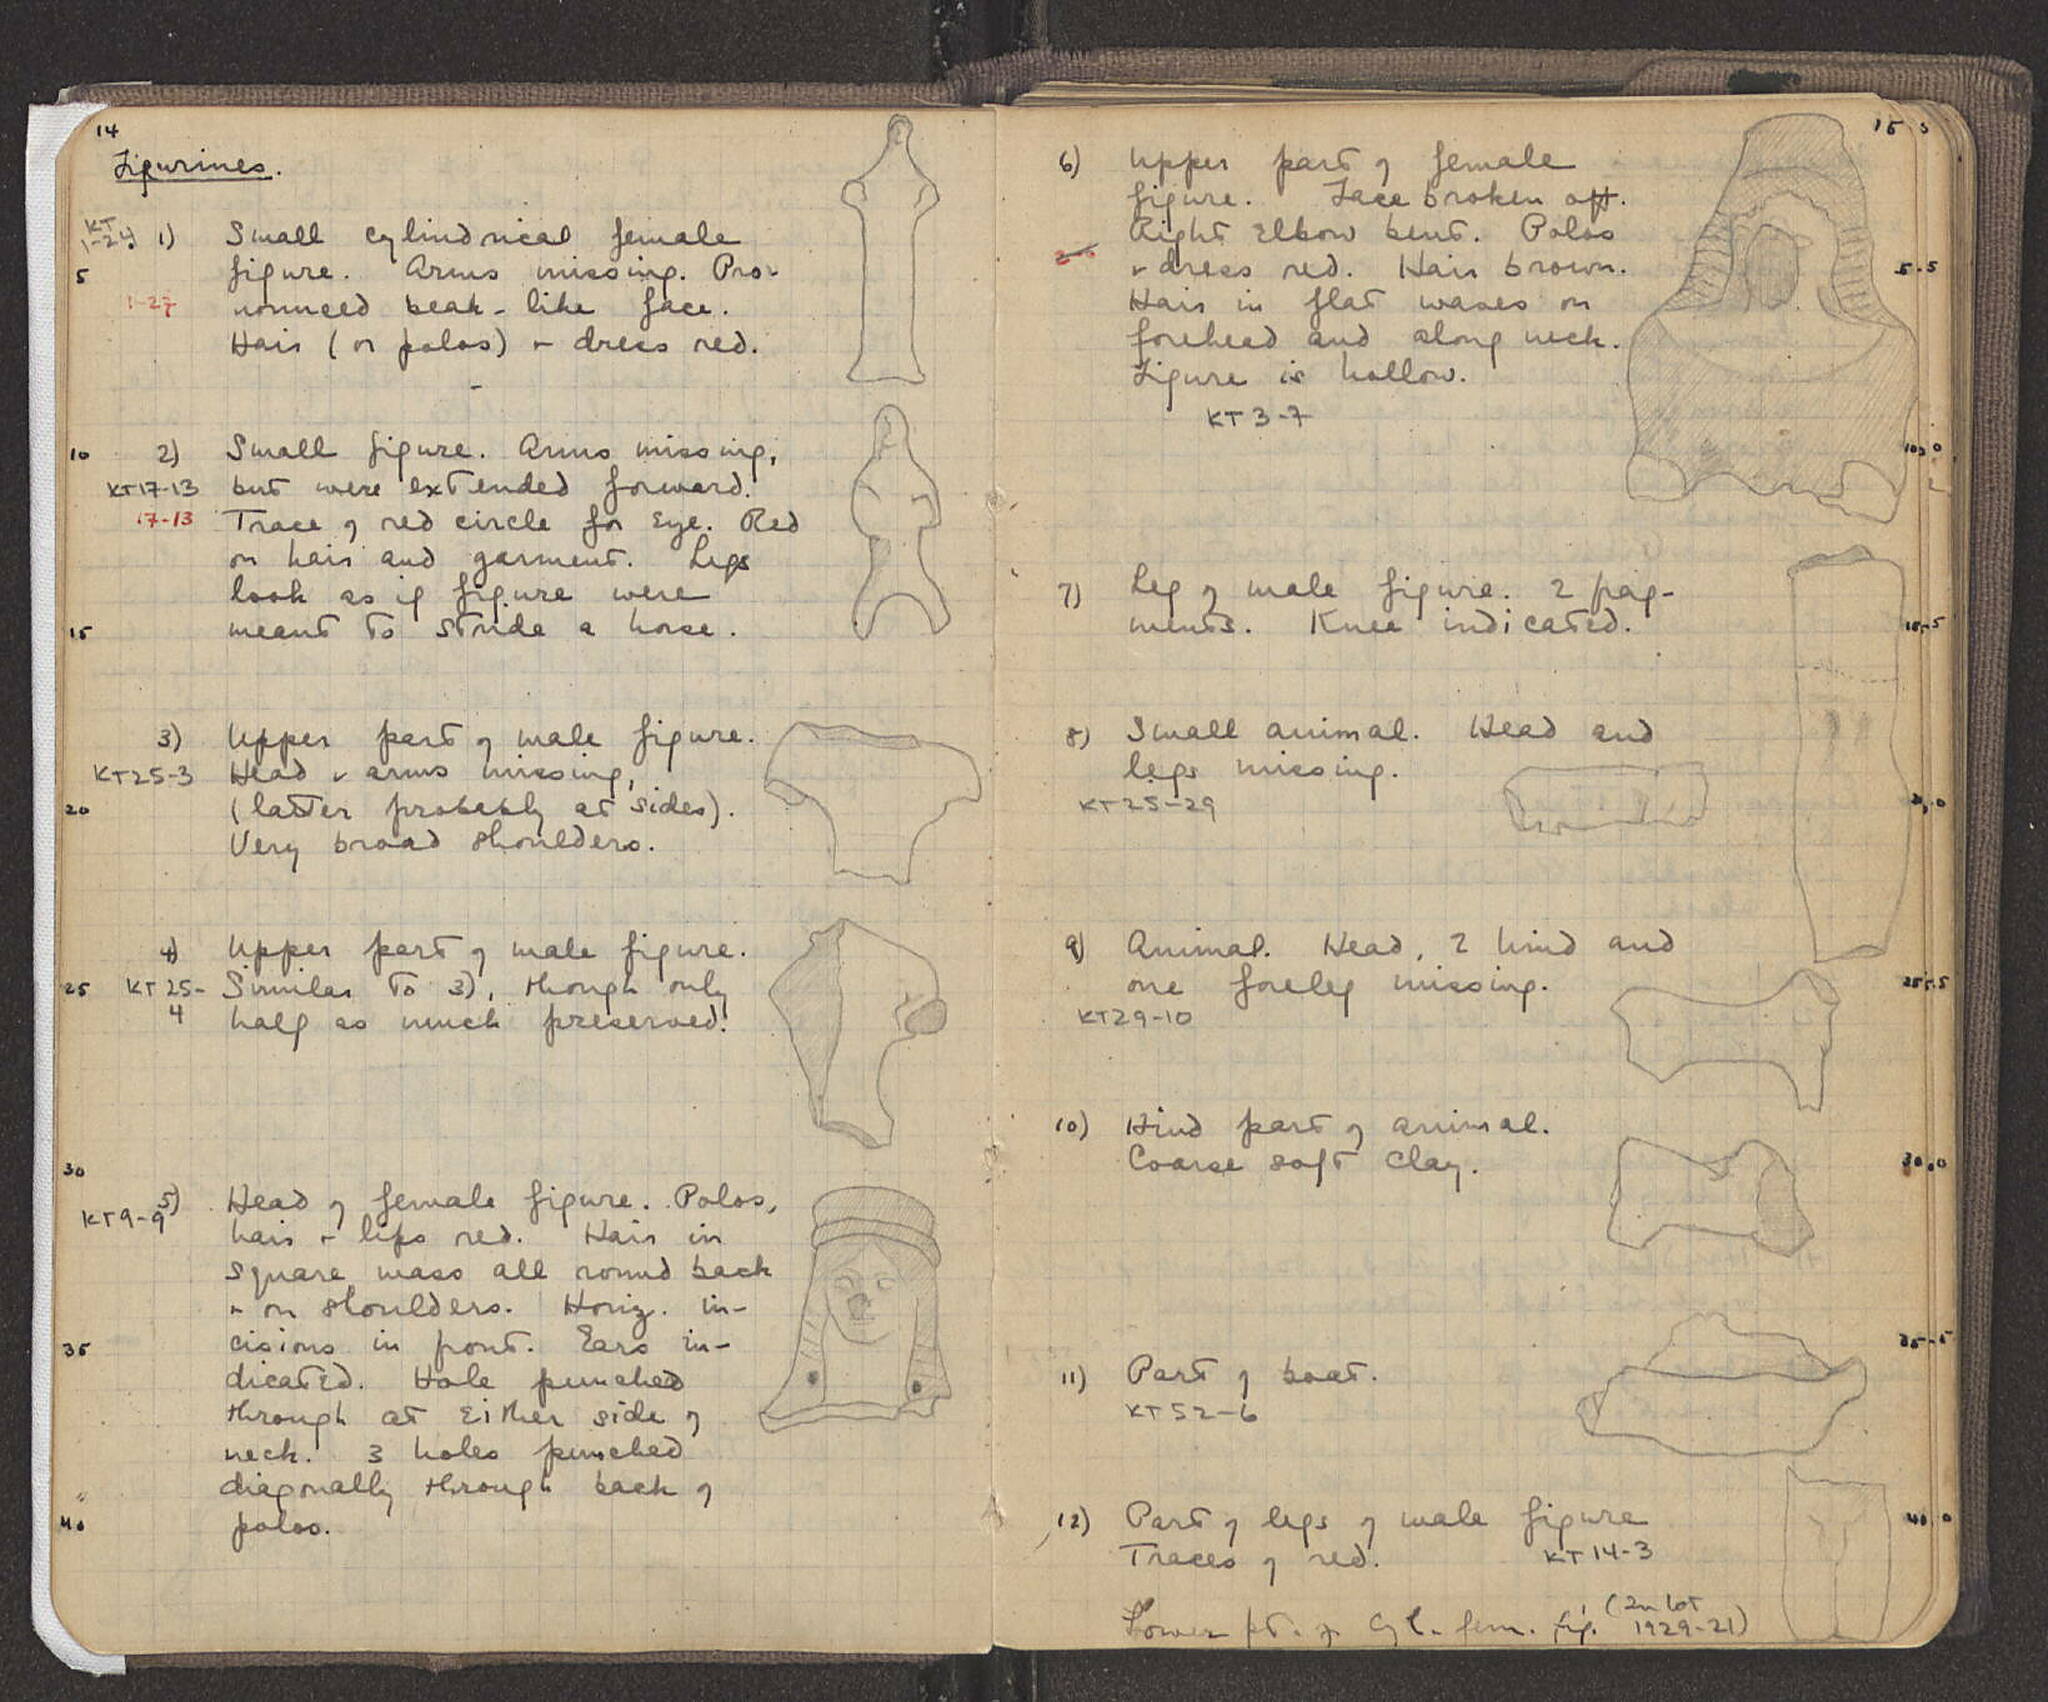 14
Figurines.
KT
1-24 1) Small cylindrical female
5 figure. Arms missing. Pro-
1-27 nounced beak-like face.
Hair (or polos) + dress red.
10 2) Small figure. Arms missing,
KT17-13 but were extended forward.
17-13 Trace of red circle for eye. Red
on hair and garment. Legs
look as if figure were
15 meant to stride a horse.
3) Upper part of male figure.
KT25-3 Head + arms missing,
20 (latter probably at sides).
Very broad shoulders.
4) Upper part of male figure.
25 KT 25- Similar to 3), though only
4 half as much preserved.
30
KT9-9 5) Head of female figure. Polos,
hair + lips red. Hair in
square mass all round back
+ on shoulders. Horiz. in-
35 cisions in front. Ears in-
dicated. Hole punched
through at either side of
neck. 3 holes punched
diagonally through back of
40 polos.
15
6) Upper part of female
figure. Face broken off.
Right elbow bent. Polos
+ dress red. Hair brown. 5
Hair in flat waves on
forehead and along neck.
Figure is hollow.
KT 3-7
10
7) Leg of male figure. 2 frag-
ments. Knee indicated. 15
8) Small animal. Head and
legs missing.
KT25-29 20
9) Animal. Head, 2 hind and
one foreleg missing. 25
KT29-10
10) Hind part of animal.
Coarse soft clay. 30
35
11) Part of boat.
KT52-6
12) Part of legs of male figure 40
Traces of red. KT 14-3
Lower pt. of Cyl. fem. fig. (In lot
1929-21)